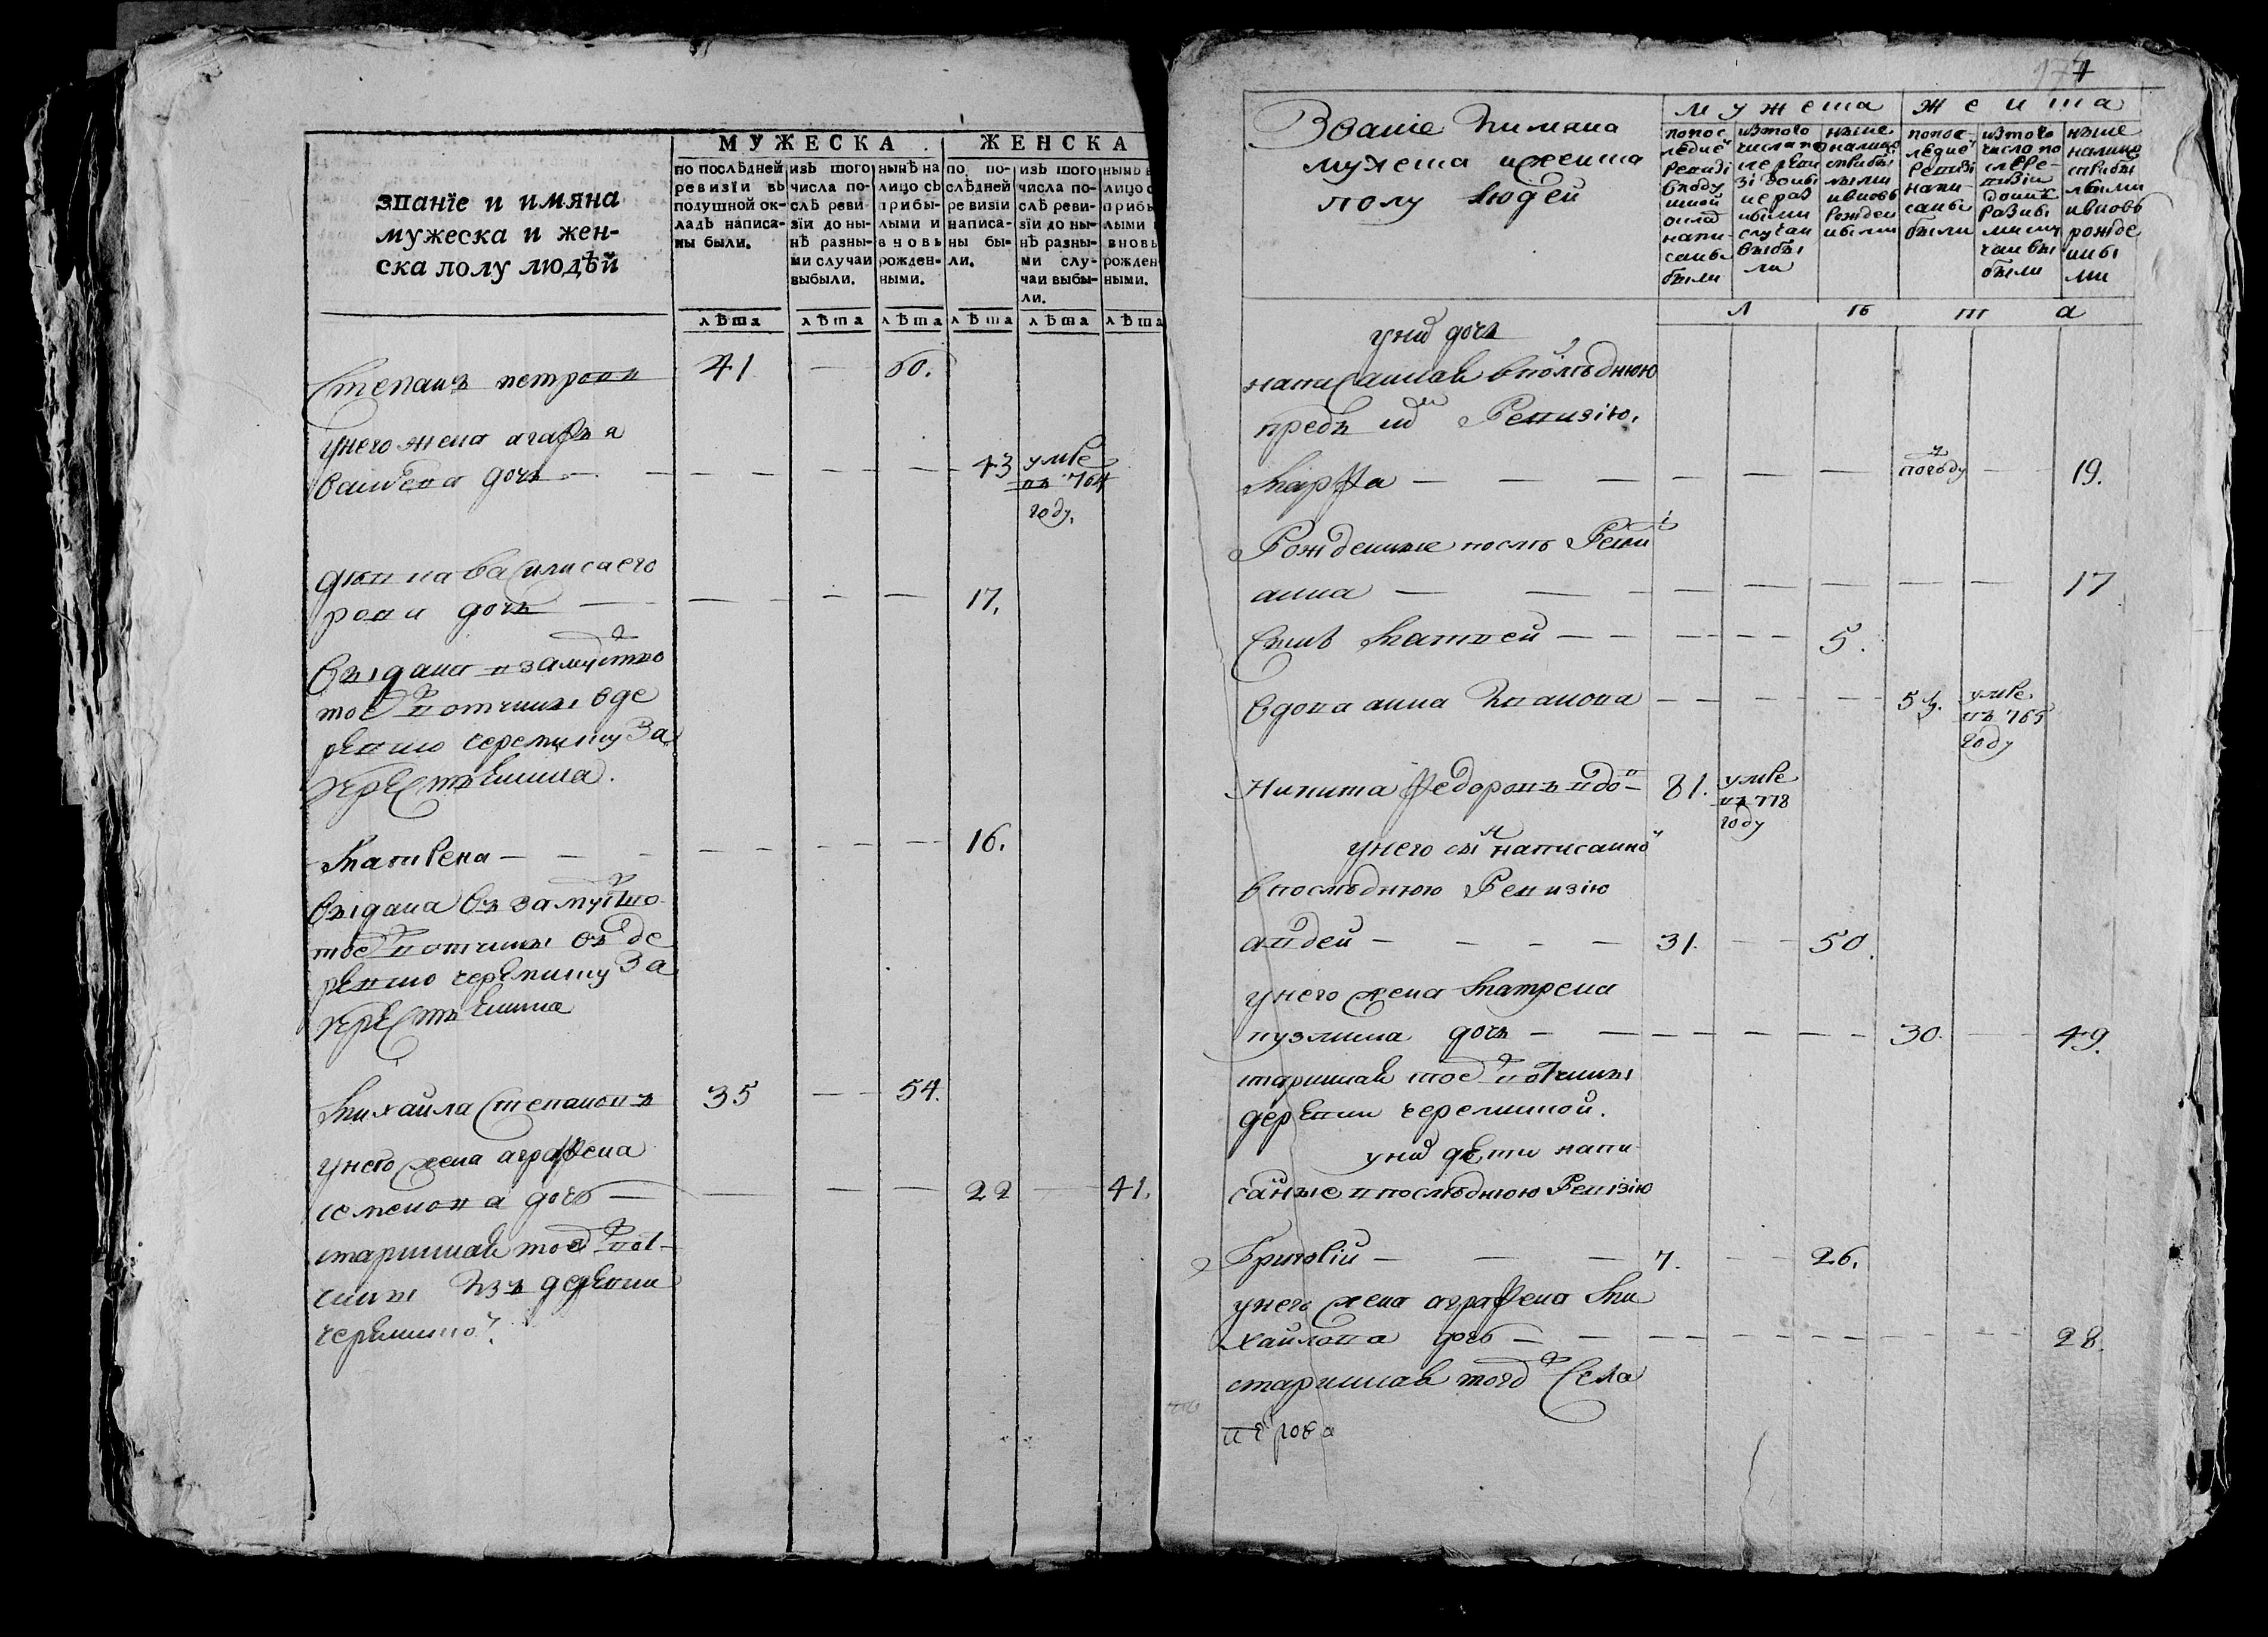 званїе и имяна
мужеска и жен-
ска полу людѣй
МУЖЕСКА
ЖЕНСКА
по послѣдней
ревизїи въ
подушной ок-
ладъ написа-
ны были.
изъ того
числа по-
слѣ реви-
зїи до ны-
нѣ разны-
ми случаи
выбыли.
нынѣ на
лицо съ
прибы-
лыми и
вновь
рожден-
ными.
по по-
слѣдней
ревизїи
написа-
ны бы-
ли.
изъ того
числа по-
слѣ реви-
зїи до ны-
нѣ разны-
ми слу-
чаи выбы-
ли.
нынѣ
лицо
прибы
лыми
вновь
рожден
ными.
лѣта лѣта лѣта лѣта лѣта лѣта
Степанъ петровъ 41 — 60.
унего жена агафья
дочь — 43 умре
въ 764
году.
девка василиса его
дочь — 17.
выдана взамуство
тое вотчины вде
ревню черемину за
крестьянина.
матрена — 16.
выдана въ замуство
тое вотчины въ де
ревню черемину за
крестьянина
михаила Степановъ 35 — 54.
унего жена аграфена
семенова дочь — 22 — 41.
старинная тое вот-
чины изъ деревни
череминой.
174
Званіе иимяна
мужеска иженска
полу людей
мужеска женска
попос
ледне
ревизі
вподу
шной
оклад
напи-
саны
были
изтого
числа по
сле реви
зі доны
не раз
ными
случаи
выбы
ли
ныне
налицо
сприбы
лыми
ивновь
рожден
ными
попос-
ледне
ревизі
напи-
саны
были
изтого
число по
слере-
визіи
доныне
разны
ми слу
чаи вы
были
ныне
налицо
сприбы
лыми
ивновь
рожде
нны
ми
л ѣ т а
уних дочь
написанная впоследнюю
пред сим Ревизію.
Марфа — — 19.
Рожденные после Ревизі
анна — 17
Сынъ Матвей — 5.
вдова анна Иванова — умре
въ 765
году
Никита федоровъ вдов — 81. умре
въ 778
году
унего сын написанной
впоследнюю Ревизію
авдей — 31. — 50.
унего жена Матрена
кузмина дочь — 30. — 49.
старинная тое вотчины
деревни череминой.
уних дети напи
санные впоследнюю Ревізію
Григорій — 7. — 26.
унего жена аграфена Ми
хайлова дочь — 28.
старинная того Села